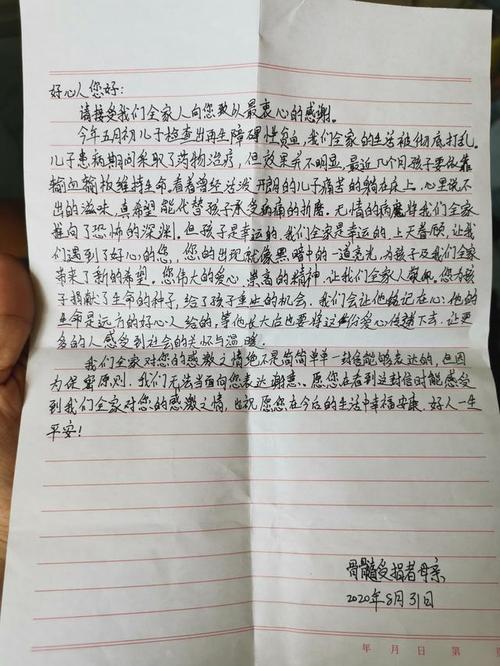 好心人您好：
请接受我们全家人向您致以最衷心的感谢。
今年五月初儿子检查出再生障碍性贫血，我们全家的生活被彻底打乱。
儿子患病期间采取了药物治疗，但效果并不明显，最近几个月孩子要依靠
输血输板维持生命，看着曾经活泼开朗的儿子痛苦的躺在床上，心里说不
出的滋味，真希望能代替孩子承受病痛的折磨。无情的病魔将我们全家
推向了恐怖的深渊。但孩子是幸运的，我们全家是幸运的，上天眷顾，让我
们遇到了好心的您，您的出现就像黑暗中的一道亮光，为孩子及我们全家
带来了新的希望。您伟大的爱心，崇高的精神，让我们全家人敬佩，您为孩
子捐献了生命的种子，给了孩子重生的机会，我们会让他铭记在心，他的
生命是远方的好心人给的，等他长大后也要将这份爱心传递下去，让更
多的人感受到社会的关怀与温暖。
我们全家对您的感激之情绝不是简简单单一封信能够表达的，但因
为保密原则，我们无法当面向您表达谢意。愿您在看到这封信时能感受
到我们全家对您的感激之情，也祝愿您在今后的生活中幸福安康，好人一生
平安！
骨髓受捐者母亲
2020年8月31日
年 月 日 第